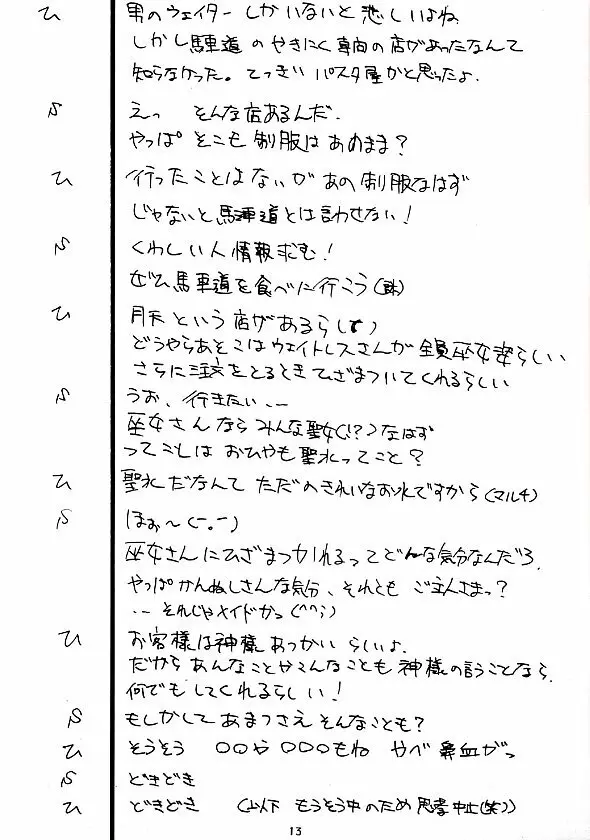 ひ 男のウェイターしかいないと悲しいよね
しかし馬車道のやきにく専向の店があったなんて
知らなかった。てっきり パスタ屋かと思ったよ.
S えっ そんな店あるんだ.
やっぱ そこも制服はあのまま?
ひ 行ったことはないが あの制服なはず
じゃないと馬車道とは言わせない!
S くわしい人情報求む!
ぜひ馬車道を食べに行こう(謎)
ひ 月天という店があるらしい
どうやらあそこはウェイトレスさんが全員巫女姿らしい
さらに注文をとるときひざまづいてくれるらしい
S うお、行きたい...
巫女さんならみんな聖女(!?)なはず
ってことは おひやも聖水ってこと?
ひ 聖水だなんて ただのきれいなお水ですから(マルチ)
S ほお〜(-。-)
巫女さんにひざまつかれるってどんな気分なんだろ.
やっぱかんぬしさんな気分、それとも ご主人さまっ?
... それじゃメイドかっ(^^;)
ひ お客様は神様あっかい らしいよ.
だから あんなことやこんなことも 神様の言うことなら.
何でもしてくれるらしい!
S もしかして あまつさえ そんなことも?
ひ そうそう 〇〇や〇〇〇もね やべ鼻血がっ
S どきどき
ひ どきどき (以下 もうそう中のため 思考中止(笑))
13